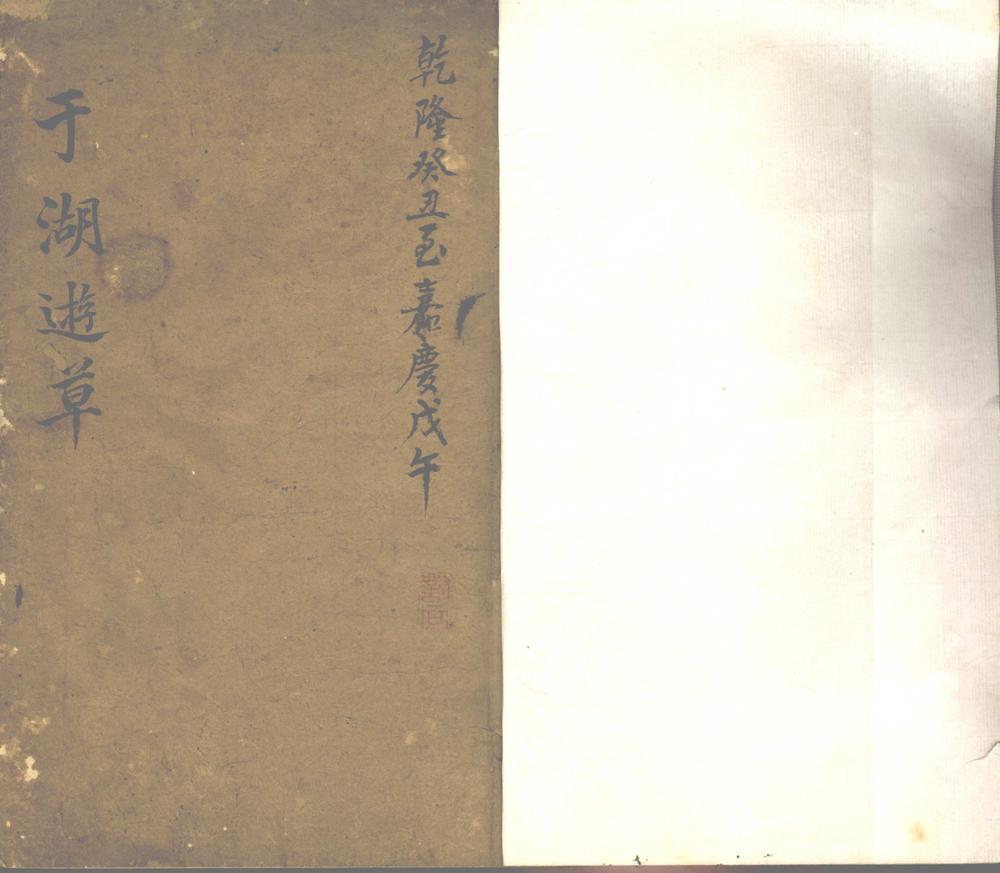 乾隆癸丑至嘉慶戊午
于湖遊草